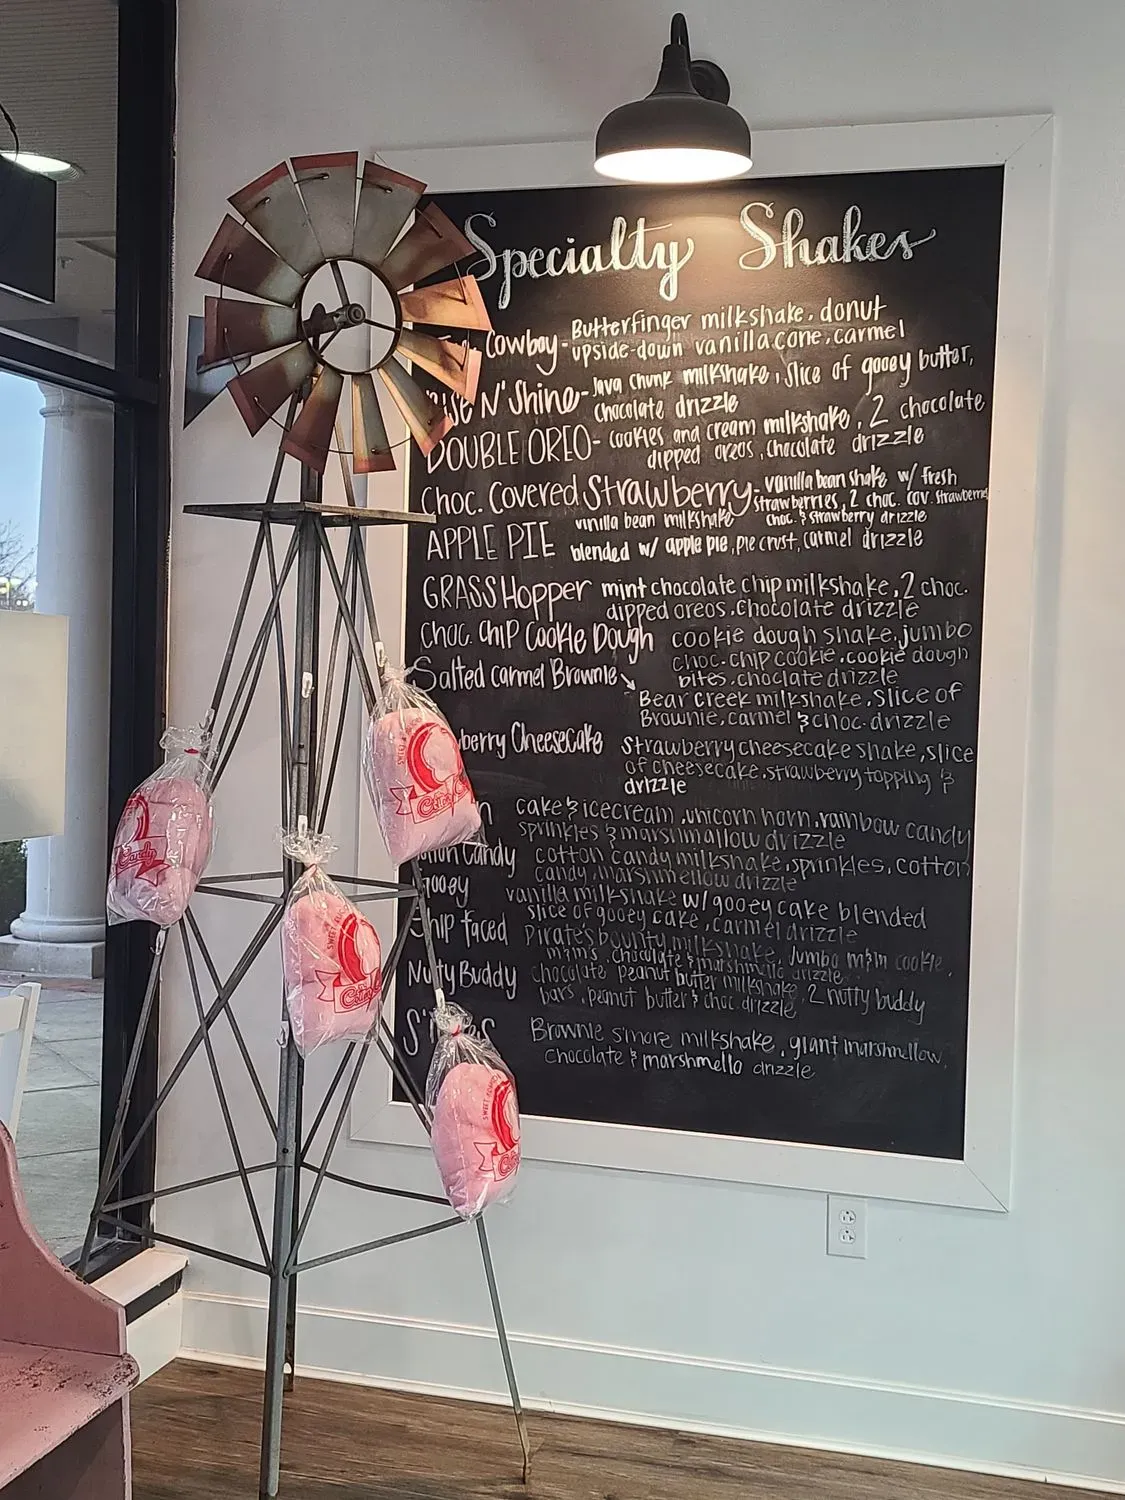 Specialty Shakes
Cowboy - Butterfinger milkshake, donut
upside-down vanilla cone, carmel
N' Shine - Java chunk milkshake, slice of gooey butter,
chocolate drizzle
DOUBLE OREO - cookies and cream milkshake, 2 chocolate
dipped oreos, chocolate drizzle
Choc. Covered Strawberry - vanilla bean shake w/ fresh
strawberries, 2 choc. cov. strawberries
choc. & strawberry drizzle
APPLE PIE vinilla bean milkshake
blended w/ apple pie, pie crust, carmel drizzle
GRASSHopper mint chocolate chip milkshake, 2 choc.
dipped oreos. chocolate drizzle
Choc. Chip Cookie Dough cookie dough shake, jumbo
choc. chip cookie, cookie dough
bites, choclate drizzle
Salted carmel Brownie Bear Creek milkshake, Slice of
Brownie, carmel & choc. drizzle
berry Cheesecake strawberry cheesecake shake, slice
of cheesecake, strawberry topping &
drizzle
cake & icecream, unicorn horn, rainbow candy
sprinkles & marshmallow drizzle
Candy cotton candy milkshake, sprinkles, cotton
candy, marshmellow drizzle
Gooey vanilla milkshake w/ gooey cake blended
slice of gooey cake, carmel drizzle
Chip Faced Pirate's bounty milkshake, Jumbo m&m cookie,
m&m's, chocolate & marshmallo drizzle
Nutty Buddy chocolate peanut butter milkshake, 2 nutty buddy
bars, peanut butter & choc drizzle
Brownie s'more milkshake, giant marshmellow,
chocolate & marshmello drizzle
Candy
Cotton